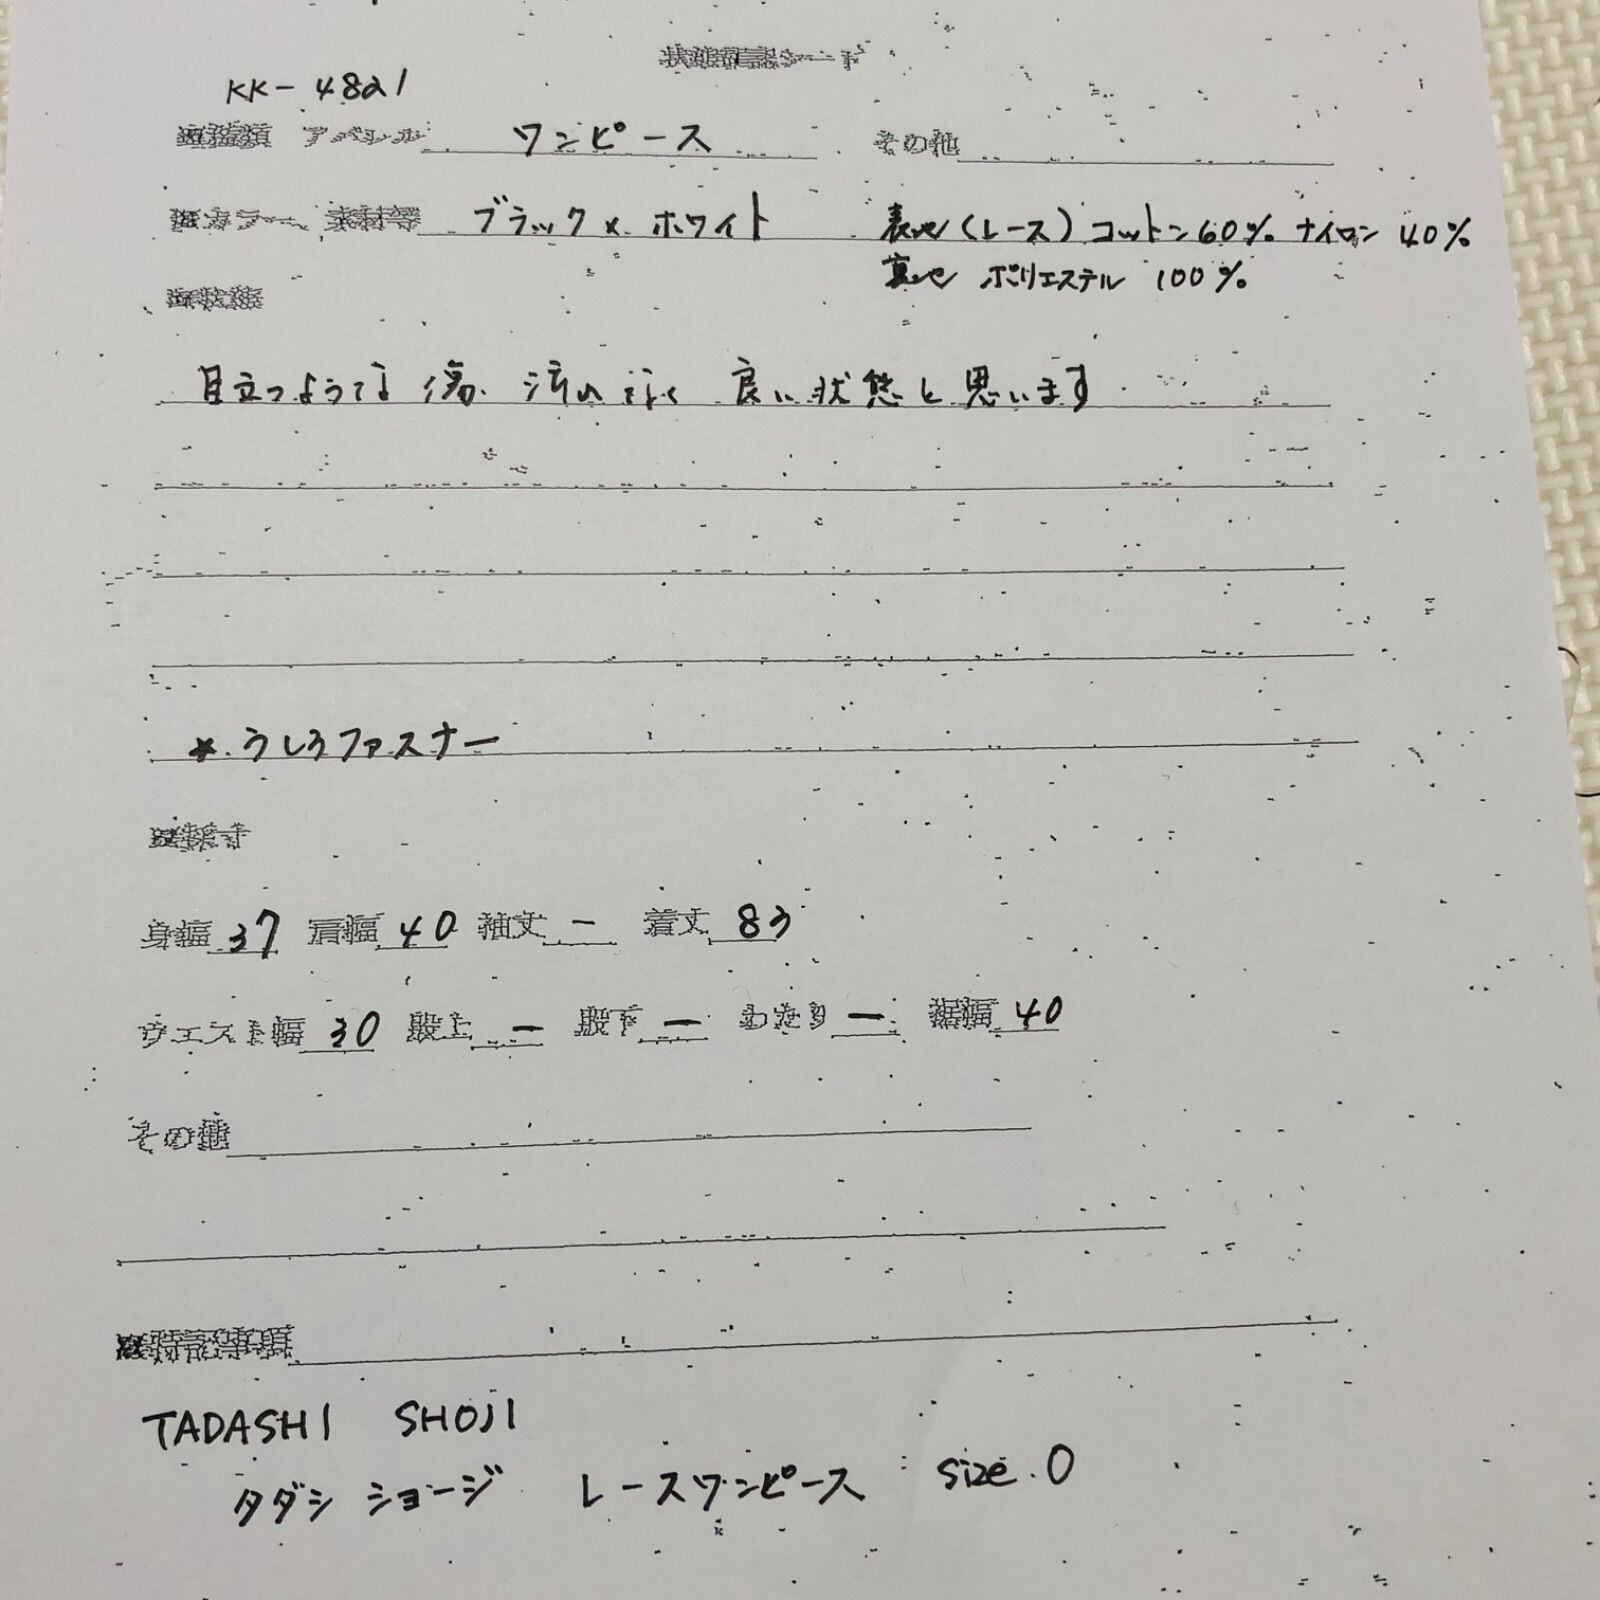 状態確認シート
KK-4821
アパレル ワンピース その他
カラー、素材等 ブラック×ホワイト 表地(レース) コットン60% ナイロン40%
裏地 ポリエステル 100%
状態
目立つような傷、汚れ なく 良い状態と思います
*うしろファスナー
採寸
身幅 37 肩幅 40 袖丈 - 着丈 83
ウエスト幅 30 股上 - 股下 - わたり - 裾幅 40
その他
特記事項
TADASHI SHOJI
タダシ ショージ レースワンピース size.0